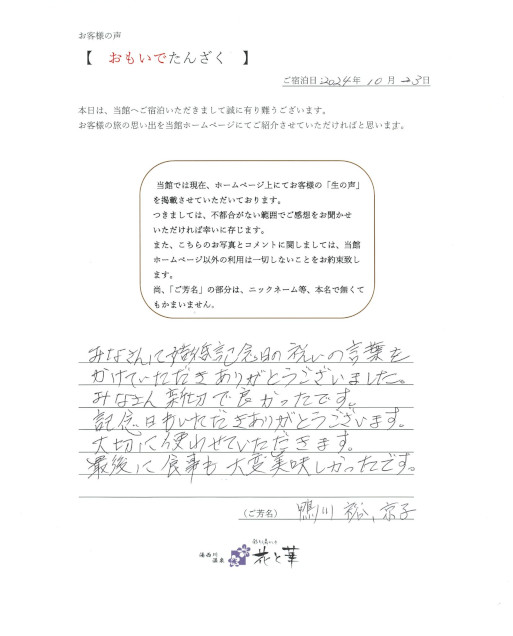 お客様の声
【 おもいでたんざく 】
ご宿泊日 2024年 10月 23日
本日は、当館へご宿泊いただきまして誠に有り難うございます。
お客様の旅の思い出を当館ホームページにてご紹介させていただければと思います。
当館では現在、ホームページ上にてお客様の「生の声」
を掲載させていただいております。
つきましては、不都合がない範囲でご感想をお聞かせ
いただければ幸いに存じます。
また、こちらのお写真とコメントに関しましては、当館
ホームページ以外の利用は一切しないことをお約束致し
ます。
尚、「ご芳名」の部分は、ニックネーム等、本名で無くて
もかまいません。
みなさんに結婚記念日の祝いの言葉を
かけていただきありがとうございました。
みなさん親切で良かったです。
記念日もいただきありがとうございます。
大切に使わせていただきます。
最後に食事も大変美味しかったです。
(ご芳名) 鴨川 裕、京子
湯西川
温泉
花と華